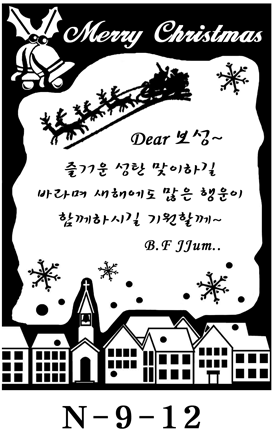 Merry Christmas
Dear 보성~
즐거운 성탄 맞이하길
바라며 새해에도 많은 행운이
함께하시길 기원할께~
B.F JJum..
N-9-12